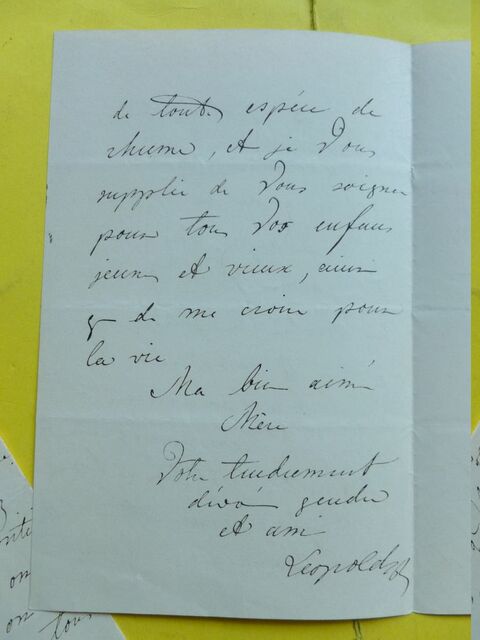 de toute espèce de
rhume, et je Vous
supplie de Vous soigner
pour tous Vos enfans
jeunes et vieux, ainsi
q de me croire pour
la vie
Ma bien aimée
Mère
Votre tendrement
dévoué gendre
et ami
Leopold